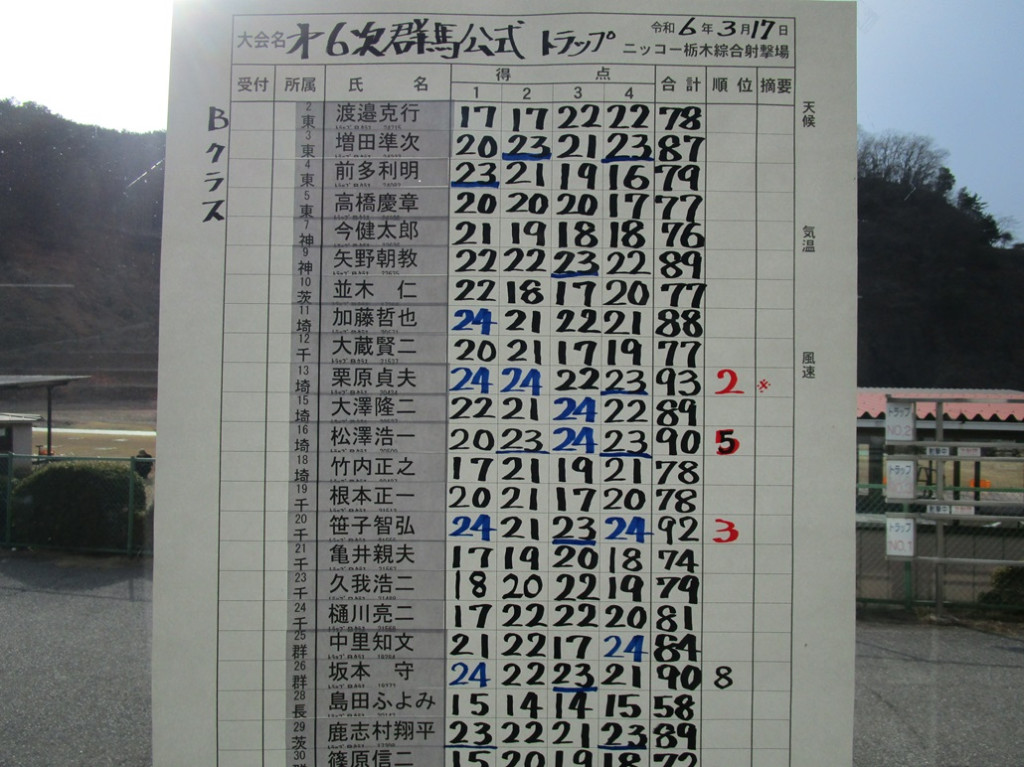 大会名 才6次群馬公式 トラップ 令和6年3月17日
ニッコー栃木綜合射撃場
受付 所属 氏 名 得 点 合計 順位 摘要
1 2 3 4
Bクラス
天候
気温
風速
2 東 渡邉克行 17 17 22 22 78
3 東 増田準次 20 23 21 23 87
4 東 前多利明 23 21 19 16 79
5 東 高橋慶章 20 20 20 17 77
7 神 今健太郎 21 19 18 18 76
9 神 矢野朝教 22 22 23 22 89
10 茨 並木 仁 22 18 17 20 77
11 埼 加藤哲也 24 21 22 21 88
12 千 大蔵賢二 20 21 17 19 77
13 埼 栗原貞夫 24 24 22 23 93 2 ※
15 埼 大澤隆二 22 21 24 22 89
16 埼 松澤浩一 20 23 24 23 90 5
18 埼 竹内正之 17 21 19 21 78
19 千 根本正一 20 21 17 20 78
20 千 笹子智弘 24 21 23 24 92 3
21 千 亀井親夫 17 19 20 18 74
23 千 久我浩二 18 20 22 19 79
24 千 樋川亮二 17 22 22 20 81
25 群 中里知文 21 22 17 24 84
26 群 坂本 守 24 22 23 21 90 8
28 長 島田ふよみ 15 14 14 15 58
29 茨 鹿志村翔平 23 22 21 23 89
30 群 篠原信二 15 20 19 18 72
トラップ
NO.2
トラップ
トラップ
NO.1